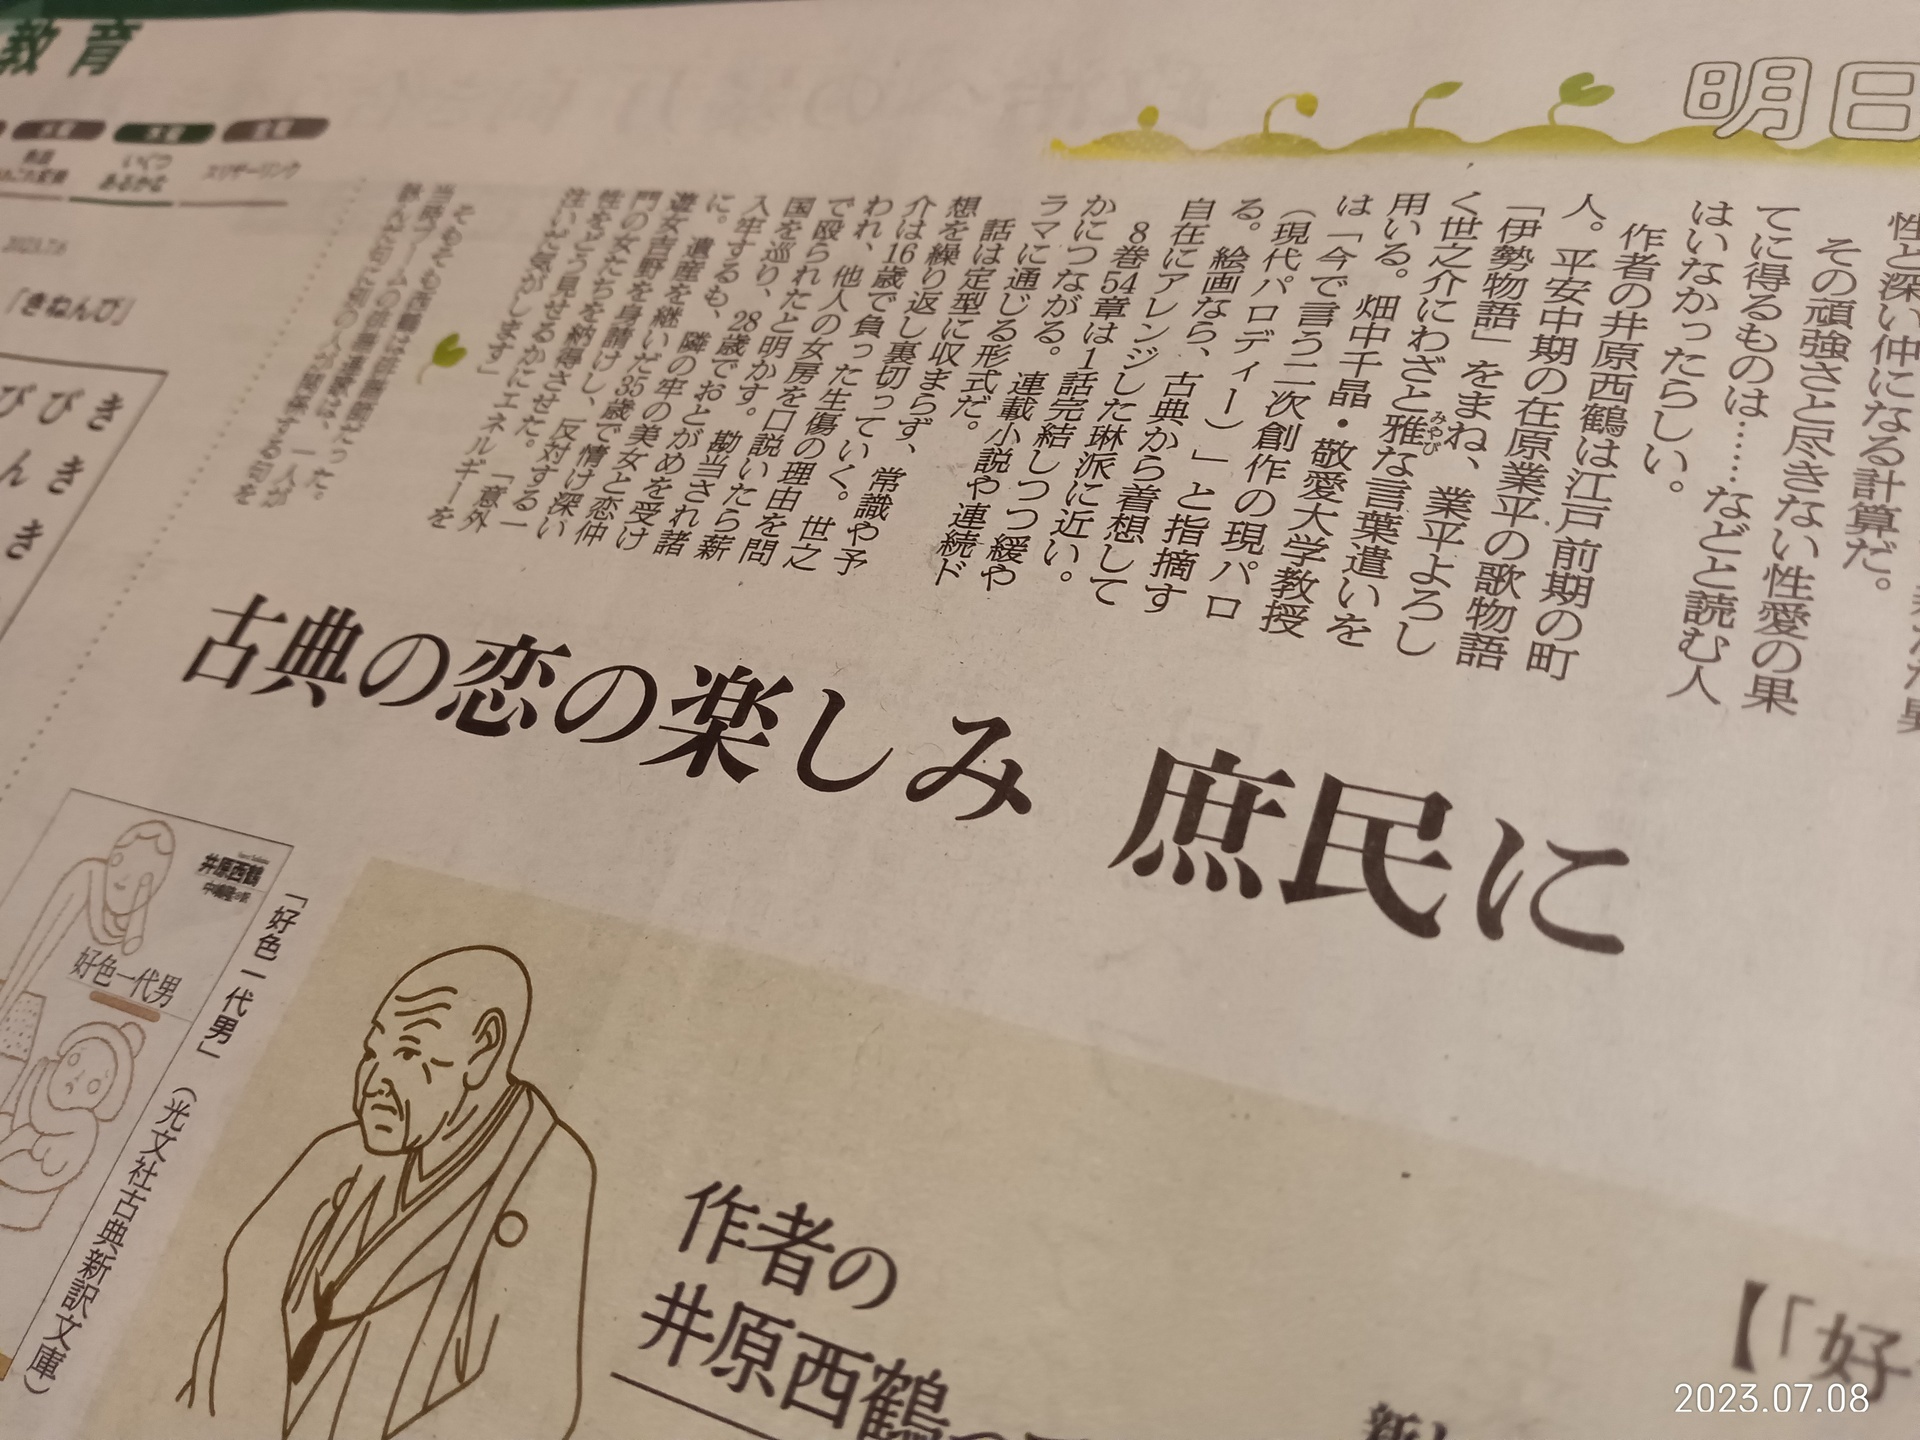 教育
明日
いくつ
あるかな
スリザーリンク
2023.7.8
「きねんび」
性と深い仲になる計算だ。
その頑強さと尽きない性愛の果
てに得るものは……などと読む人
はいなかったらしい。
作者の井原西鶴は江戸前期の町
人。平安中期の在原業平の歌物語
「伊勢物語」をまね、業平よろし
く世之介にわざと雅な言葉遣いを
みやび
用いる。畑中千晶・敬愛大学教授
は「今で言う二次創作の現パロ
(現代パロディー)」と指摘す
る。絵画なら、古典から着想して
自在にアレンジした琳派に近い。
8巻54章は1話完結しつつ緩や
かにつながる。連載小説や連続ド
ラマに通じる形式だ。
話は定型に収まらず、常識や予
想を繰り返し裏切っていく。世之
介は16歳で負った生傷の理由を問
われ、他人の女房を口説いたら薪
で殴られたと明かす。勘当され諸
国を巡り、28歳でおとがめを受け
入牢するも、隣の牢の美女と恋仲
に。遺産を継いだ35歳で情け深い
遊女吉野を身請けし、反対する一
門の女たちを納得させた。「意外
性をどう見せるかにエネルギーを
注いだ気がします」
そもそも西鶴は俳諧師だった。
古典の恋の楽しみ 庶民に
き
び
び
き
ん
き
井原西鶴
好色一代男
「好色一代男」(光文社古典新訳文庫)
作者の
井原西鶴
【「好
2023.07.08